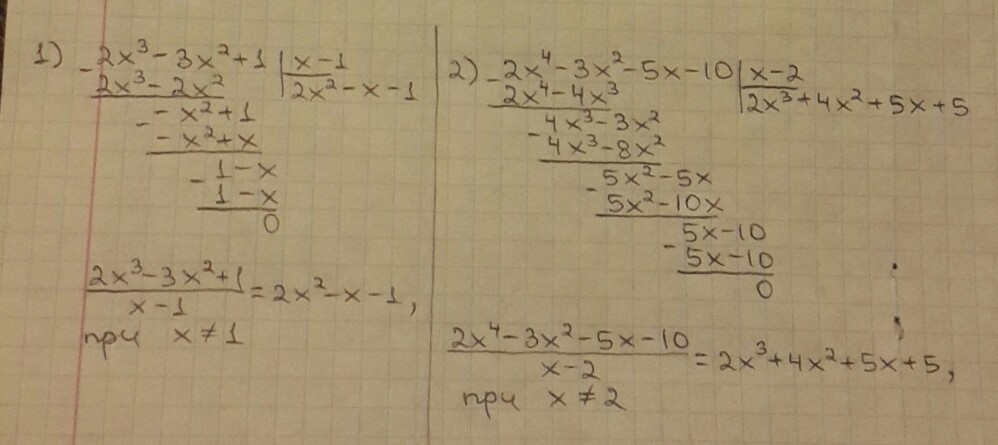 1) - 2x³ - 3x² + 1 | x - 1
2x³ - 2x² | 2x² - x - 1
- - x² + 1
- x² + x
- 1 - x
1 - x
0
(2x³ - 3x² + 1)/(x - 1) = 2x² - x - 1,
при x ≠ 1
2) - 2x⁴ - 3x² - 5x - 10 | x - 2
2x⁴ - 4x³ | 2x³ + 4x² + 5x + 5
- 4x³ - 3x²
4x³ - 8x²
- 5x² - 5x
5x² - 10x
- 5x - 10
5x - 10
0
(2x⁴ - 3x² - 5x - 10)/(x - 2) = 2x³ + 4x² + 5x + 5,
при x ≠ 2